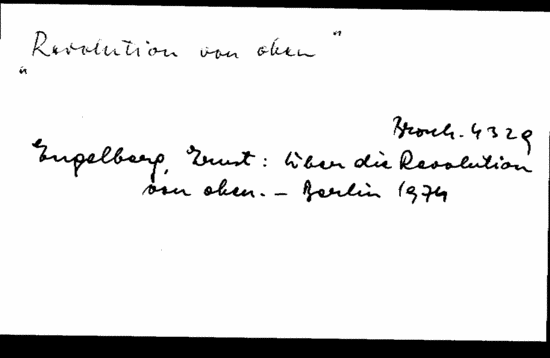 "Revolution von oben"
Brosch. 4329
Engelberg, Ernst: Über die Revolution
von oben. – Berlin 1974